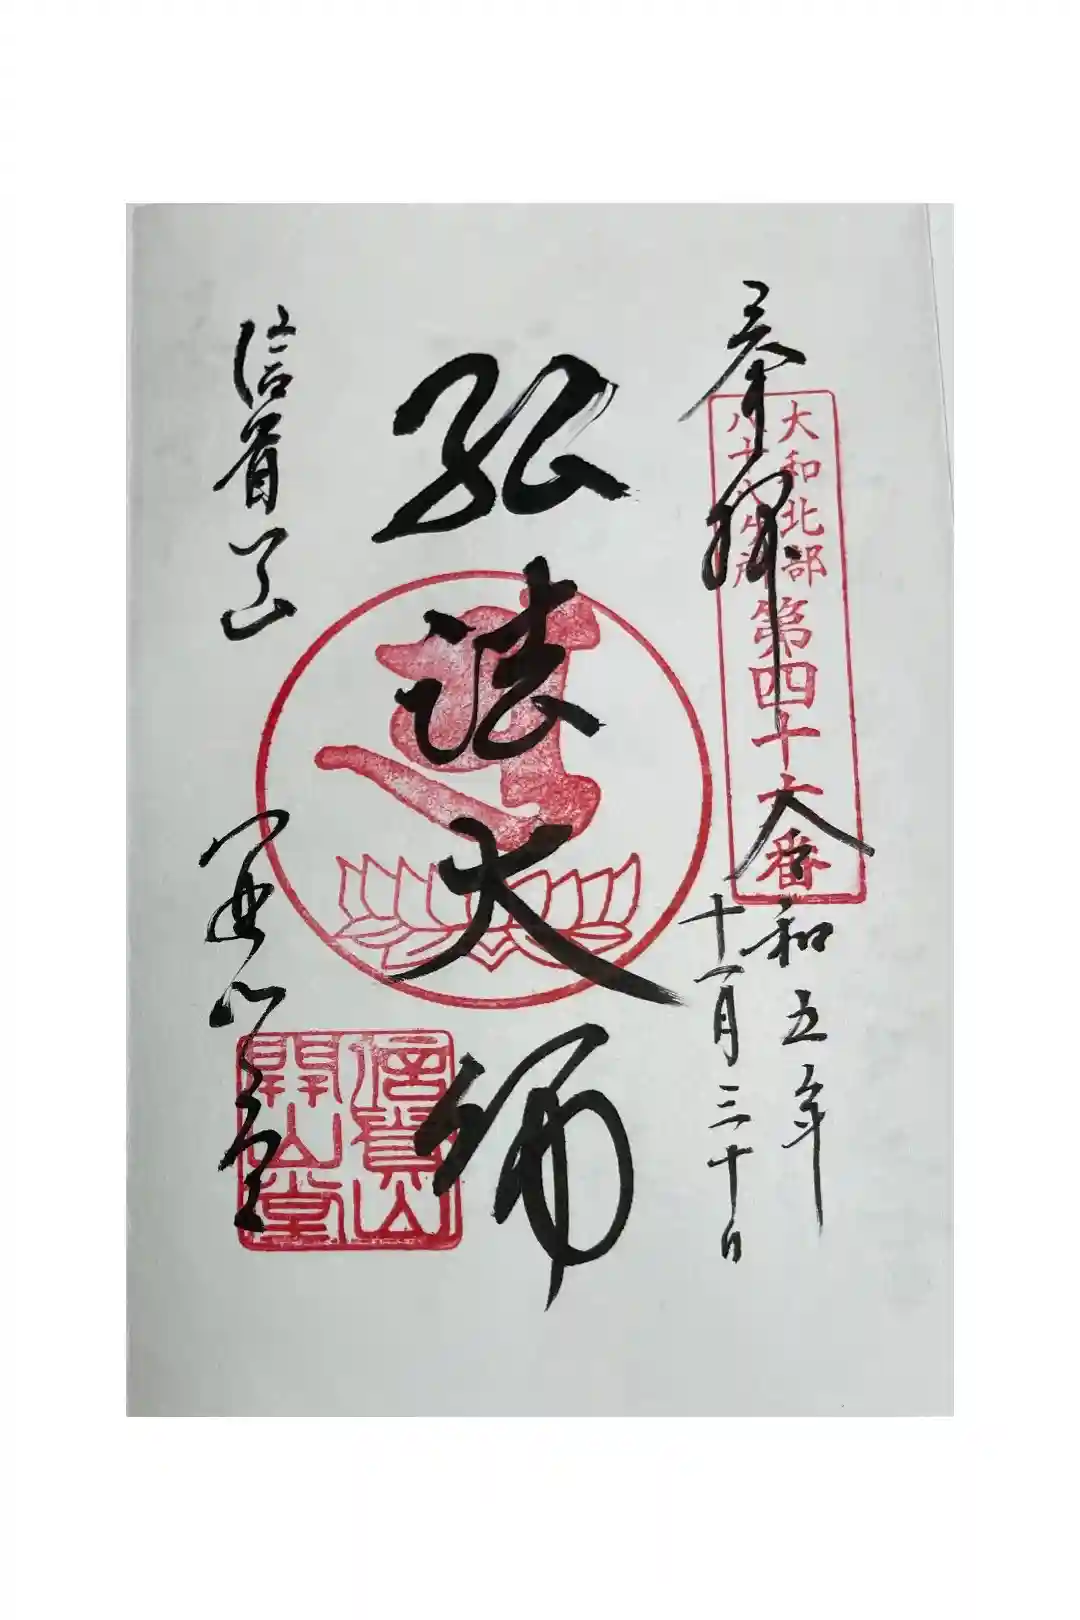 奉拝
大和北部
八十八ヶ所
第四十六番
令和五年
十一月三十日
弘法大師
信貴山
開山堂
信貴山
開山堂